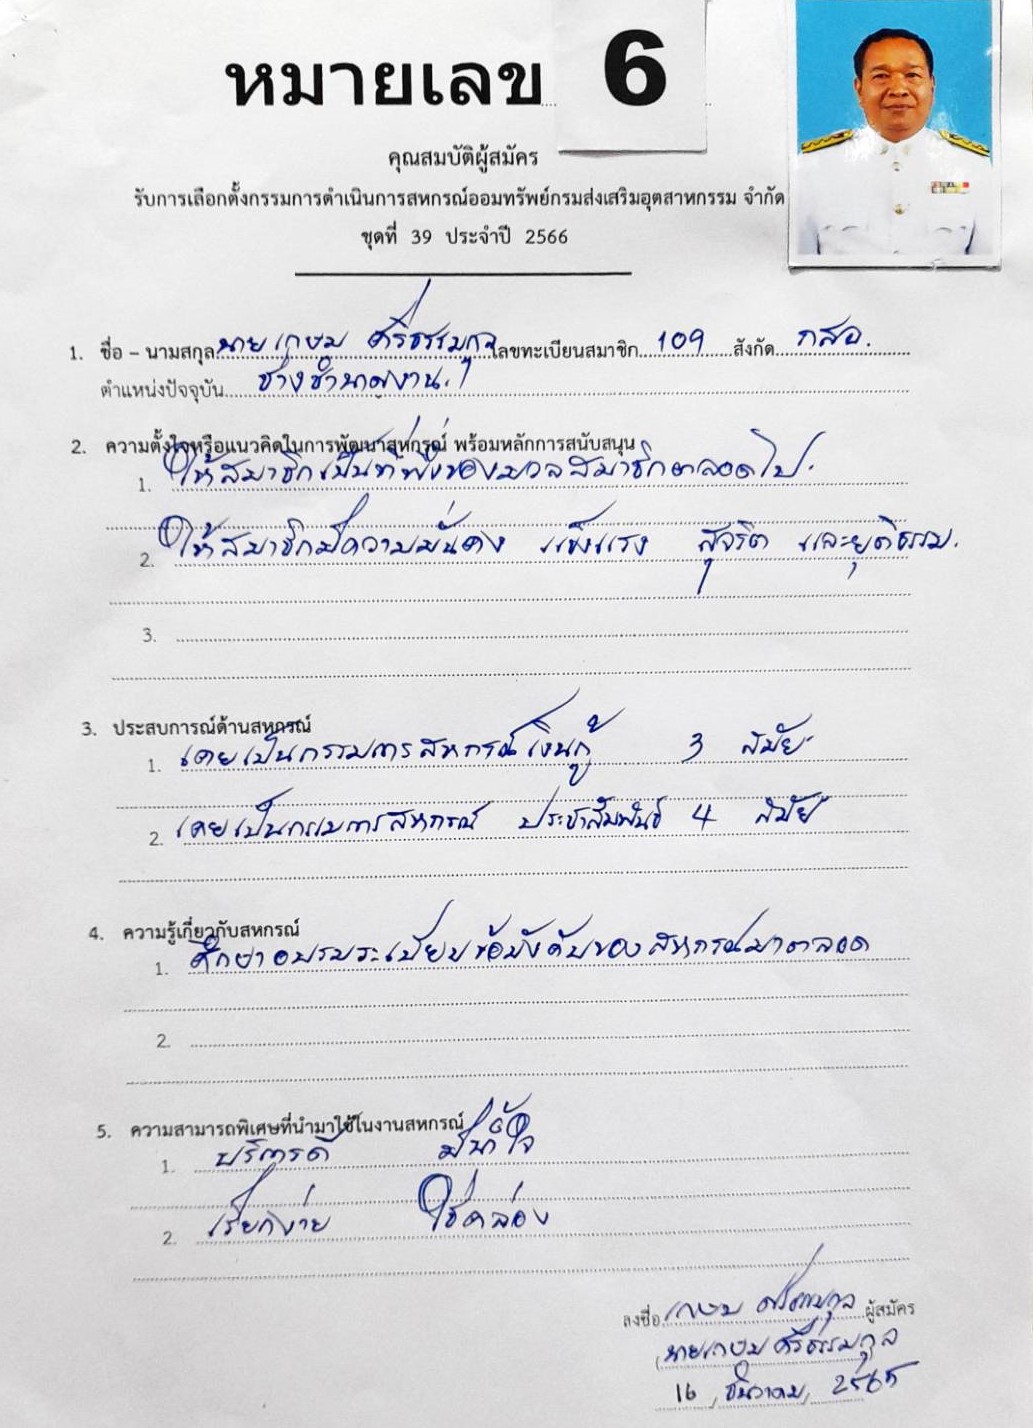 หมายเลข 6
คุณสมบัติผู้สมัคร
รับการเลือกตั้งกรรมการดำเนินการสหกรณ์ออมทรัพย์กรมส่งเสริมอุตสาหกรรม จำกัด
ชุดที่ 39 ประจำปี 2566
1. ชื่อ – นามสกุล นายเกษม ศรีธรรมกุล เลขทะเบียนสมาชิก 109 สังกัด กสอ.
ตำแหน่งปัจจุบัน ช่างชำนาญงาน
2. ความตั้งใจหรือแนวคิดในการพัฒนาสหกรณ์ พร้อมหลักการสนับสนุน
1. ให้สมาชิกเป็นที่พึ่งของมวลสมาชิกตลอดไป
2. ให้สมาชิกมีความมั่นคง แข็งแรง สุจริต และยุติธรรม.
3.
3. ประสบการณ์ด้านสหกรณ์
1. เคยเป็นกรรมการสหกรณ์เงินกู้ 3 สมัย
2. เคยเป็นกรรมการสหกรณ์ ประชาสัมพันธ์ 4 สมัย
4. ความรู้เกี่ยวกับสหกรณ์
1. ศึกษาอบรมระเบียบข้อบังคับของสหกรณ์มาตลอด
2.
5. ความสามารถพิเศษที่นำมาใช้ในงานสหกรณ์
1. บริการดี มีน้ำใจ
2. เรียกง่าย ใช้คล่อง
ลงชื่อ เกษม ศรีธรรมกุล ผู้สมัคร
(นายเกษม ศรีธรรมกุล
16 ธันวาคม 2565